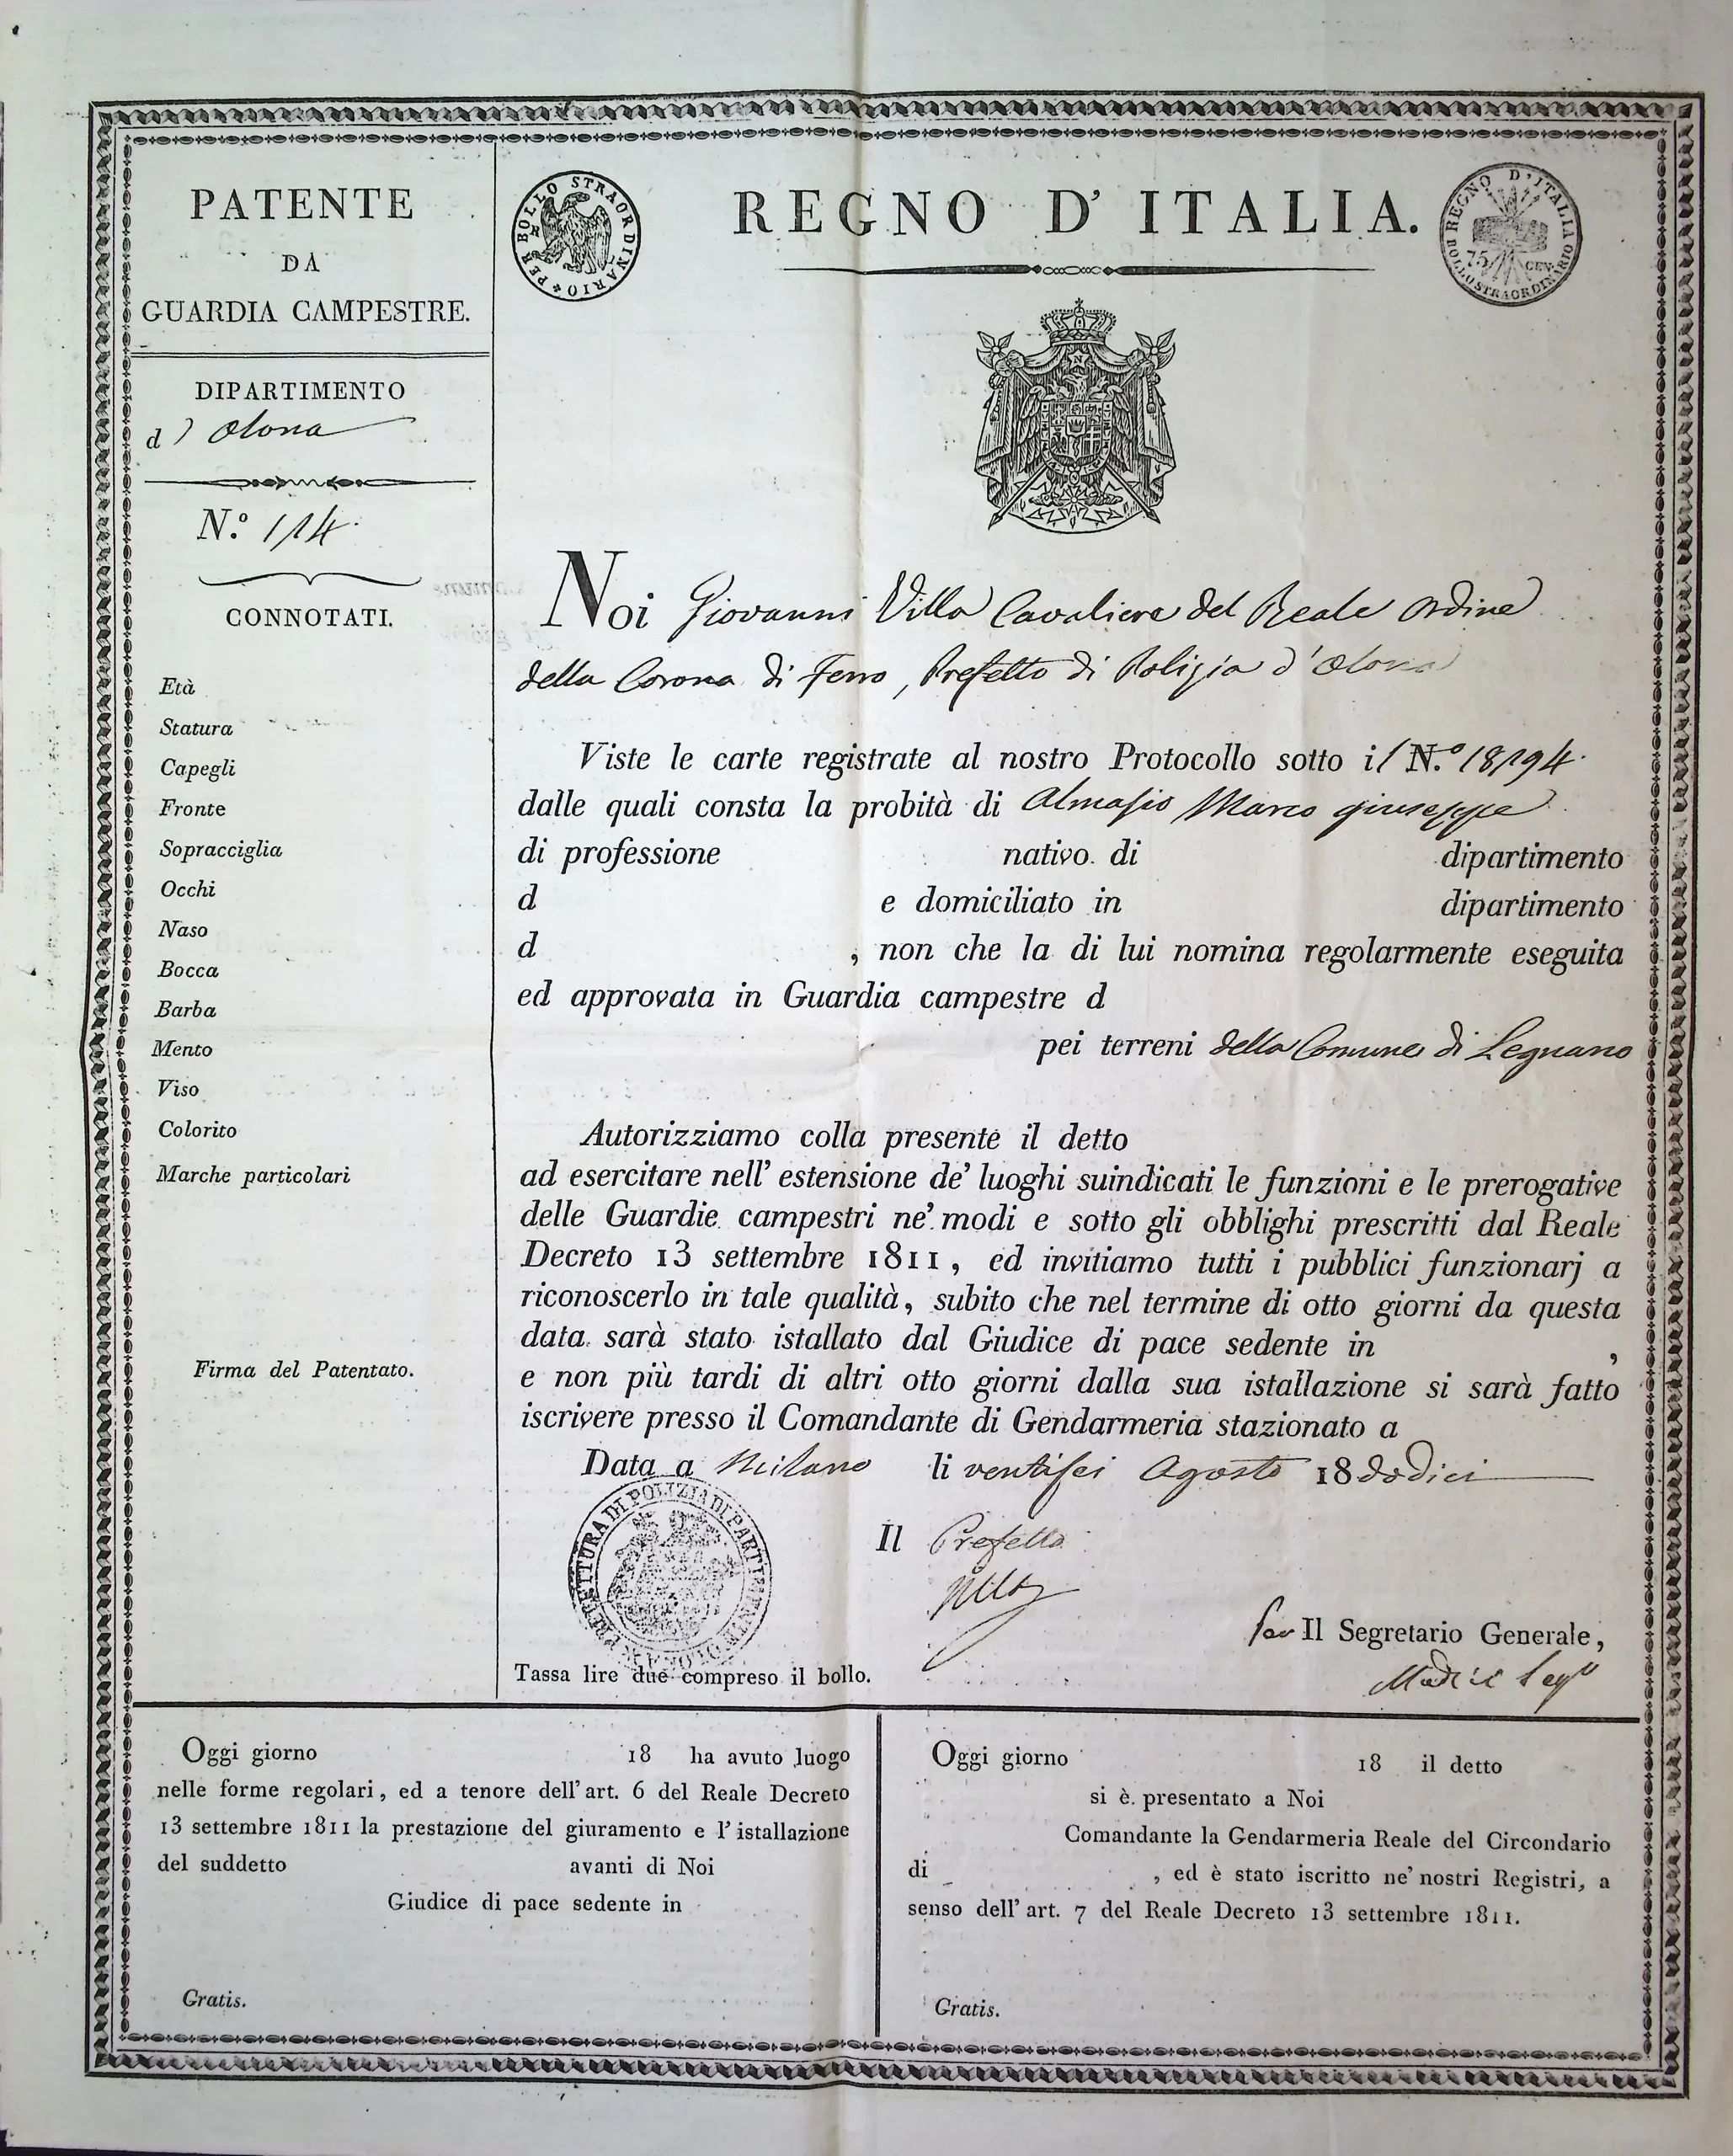 PATENTE
DA
GUARDIA CAMPESTRE.
DIPARTIMENTO
d' Olona
N.º 114
CONNOTATI.
Età
Statura
Capegli
Fronte
Sopracciglia
Occhi
Naso
Bocca
Barba
Mento
Viso
Colorito
Marche particolari
Firma del Patentato.
PER BOLLO STRAORDINARIO
REGNO D' ITALIA.
REGNO D'ITALIA
75 CEN.
BOLLO STRAORDINARIO
N
Noi Giovanni Villa Cavaliere del Reale Ordine
della Corona di Ferro, Prefetto di Polizia d'Olona
Viste le carte registrate al nostro Protocollo sotto il N.º 18194.
dalle quali consta la probità di Almasio Marco Giuseppe
di professione nativo di dipartimento
d e domiciliato in dipartimento
d , non che la di lui nomina regolarmente eseguita
ed approvata in Guardia campestre d
pei terreni della Comune di Legnano
Autorizziamo colla presente il detto
ad esercitare nell' estensione de' luoghi suindicati le funzioni e le prerogative
delle Guardie campestri ne' modi e sotto gli obblighi prescritti dal Reale
Decreto 13 settembre 1811, ed invitiamo tutti i pubblici funzionarj a
riconoscerlo in tale qualità, subito che nel termine di otto giorni da questa
data sarà stato istallato dal Giudice di pace sedente in ,
e non più tardi di altri otto giorni dalla sua istallazione si sarà fatto
iscrivere presso il Comandante di Gendarmeria stazionato a
Data a Milano li ventisei Agosto 18dodici
PREFETTURA DI POLIZIA DI PARTIMENTO D'OLONA
Il Prefetto
Villa
Per Il Segretario Generale,
Tassa lire due compreso il bollo.
Oggi giorno 18 ha avuto luogo
nelle forme regolari, ed a tenore dell' art. 6 del Reale Decreto
13 settembre 1811 la prestazione del giuramento e l' istallazione
del suddetto avanti di Noi
Giudice di pace sedente in
Gratis.
Oggi giorno 18 il detto
si è presentato a Noi
Comandante la Gendarmeria Reale del Circondario
di , ed è stato iscritto ne' nostri Registri, a
senso dell' art. 7 del Reale Decreto 13 settembre 1811.
Gratis.